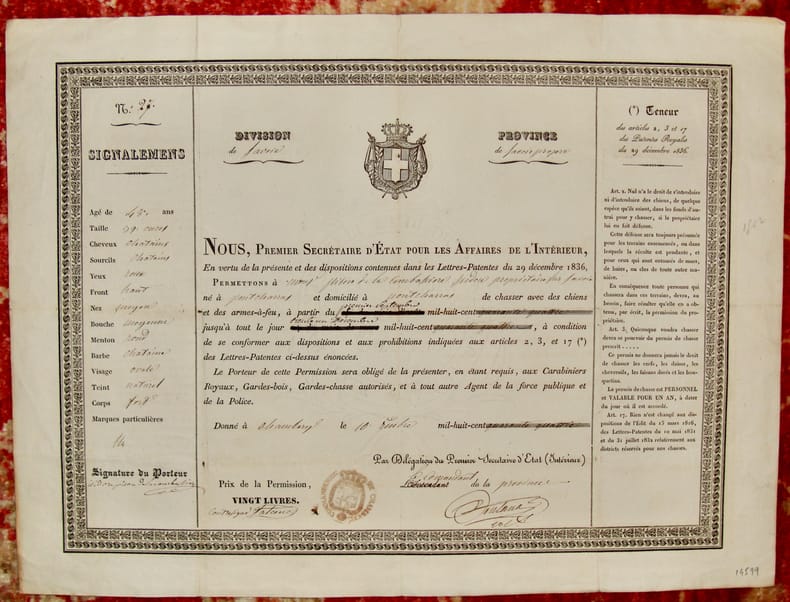 N.° 27.
SIGNALEMENS
Agé de 43 ans
Taille 39 onces
Cheveux chatains
Sourcils chatains
Yeux roux
Front haut
Nez moyen
Bouche moyenne
Menton rond
Barbe chataine
Visage ovale
Teint naturel
Corps fort
Marques particulières
Signature du Porteur
DIVISION
de Savoie
PROVINCE
de Savoie propre
NOUS, PREMIER SECRÉTAIRE D'ÉTAT POUR LES AFFAIRES DE L'INTÉRIEUR,
En vertu de la présente et des dispositions contenues dans les Lettres-Patentes du 29 décembre 1836,
PERMETTONS à
né à pontcharra et domicilié à pontcharra de chasser avec des chiens
et des armes-à-feu, à partir du premier Septembre mil-huit-cent quarante quatre
jusqu'à tout le jour mil-huit-cent quarante quatre, à condition
de se conformer aux dispositions et aux prohibitions indiquées aux articles 2, 3, et 17 (*)
des Lettres-Patentes ci-dessus énoncées.
Le Porteur de cette Permission sera obligé de la présenter, en étant requis, aux Carabiniers
Royaux, Gardes-bois, Gardes-chasse autorisés, et à tout autre Agent de la force publique et
de la Police.
Donné à Chambéry le 10 mil-huit-cent quarante quatre
Par Délégation du Premier Secrétaire d'Etat (Intérieur)
Commandant de la province
Prix de la Permission,
VINGT LIVRES.
(*) Teneur
des articles 2, 3 et 17
des Patentes Royales
du 29 décembre 1836.
Art. 2. Nul n'a le droit de s'introduire
ni d'introduire des chiens, de quelque
espèce qu'ils soient, dans les fonds d'autrui
pour y chasser, si le propriétaire
lui en fait défense.
Cette défense sera toujours présumée
pour les terrains ensemencés, ou dans
lesquels la récolte est pendante, et
pour ceux qui sont entourés de murs,
de haies, ou clos de toute autre manière.
En conséquence toute personne qui
chassera dans ces terrains, devra, au
besoin, faire résulter qu'elle en a obtenu,
par écrit, la permission du propriétaire.
Art. 3. Quiconque voudra chasser
devra se pourvoir du permis de chasse
prescrit.....
Ce permis ne donnera jamais le droit
de chasser les cerfs, les daims, les
chevreuils, les faisans dorés et les bouquetins.
Le permis de chasse est PERSONNEL
et VALABLE POUR UN AN, à dater
du jour où il est accordé.
Art. 17. Rien n'est changé aux dispositions
de l'Edit du 15 mars 1816,
des Lettres-Patentes du 10 mai 1831
et du 31 juillet 1832 relativement aux
districts réservés pour nos chasses.
14599